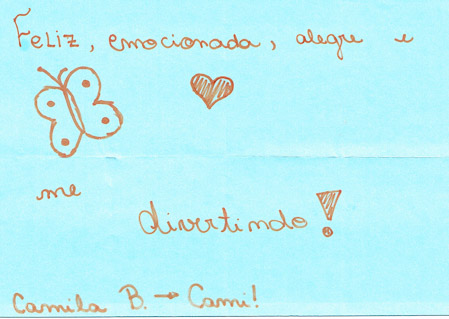 Feliz, emocionada, alegre e
me
divertindo!
Camila B. → Cami!